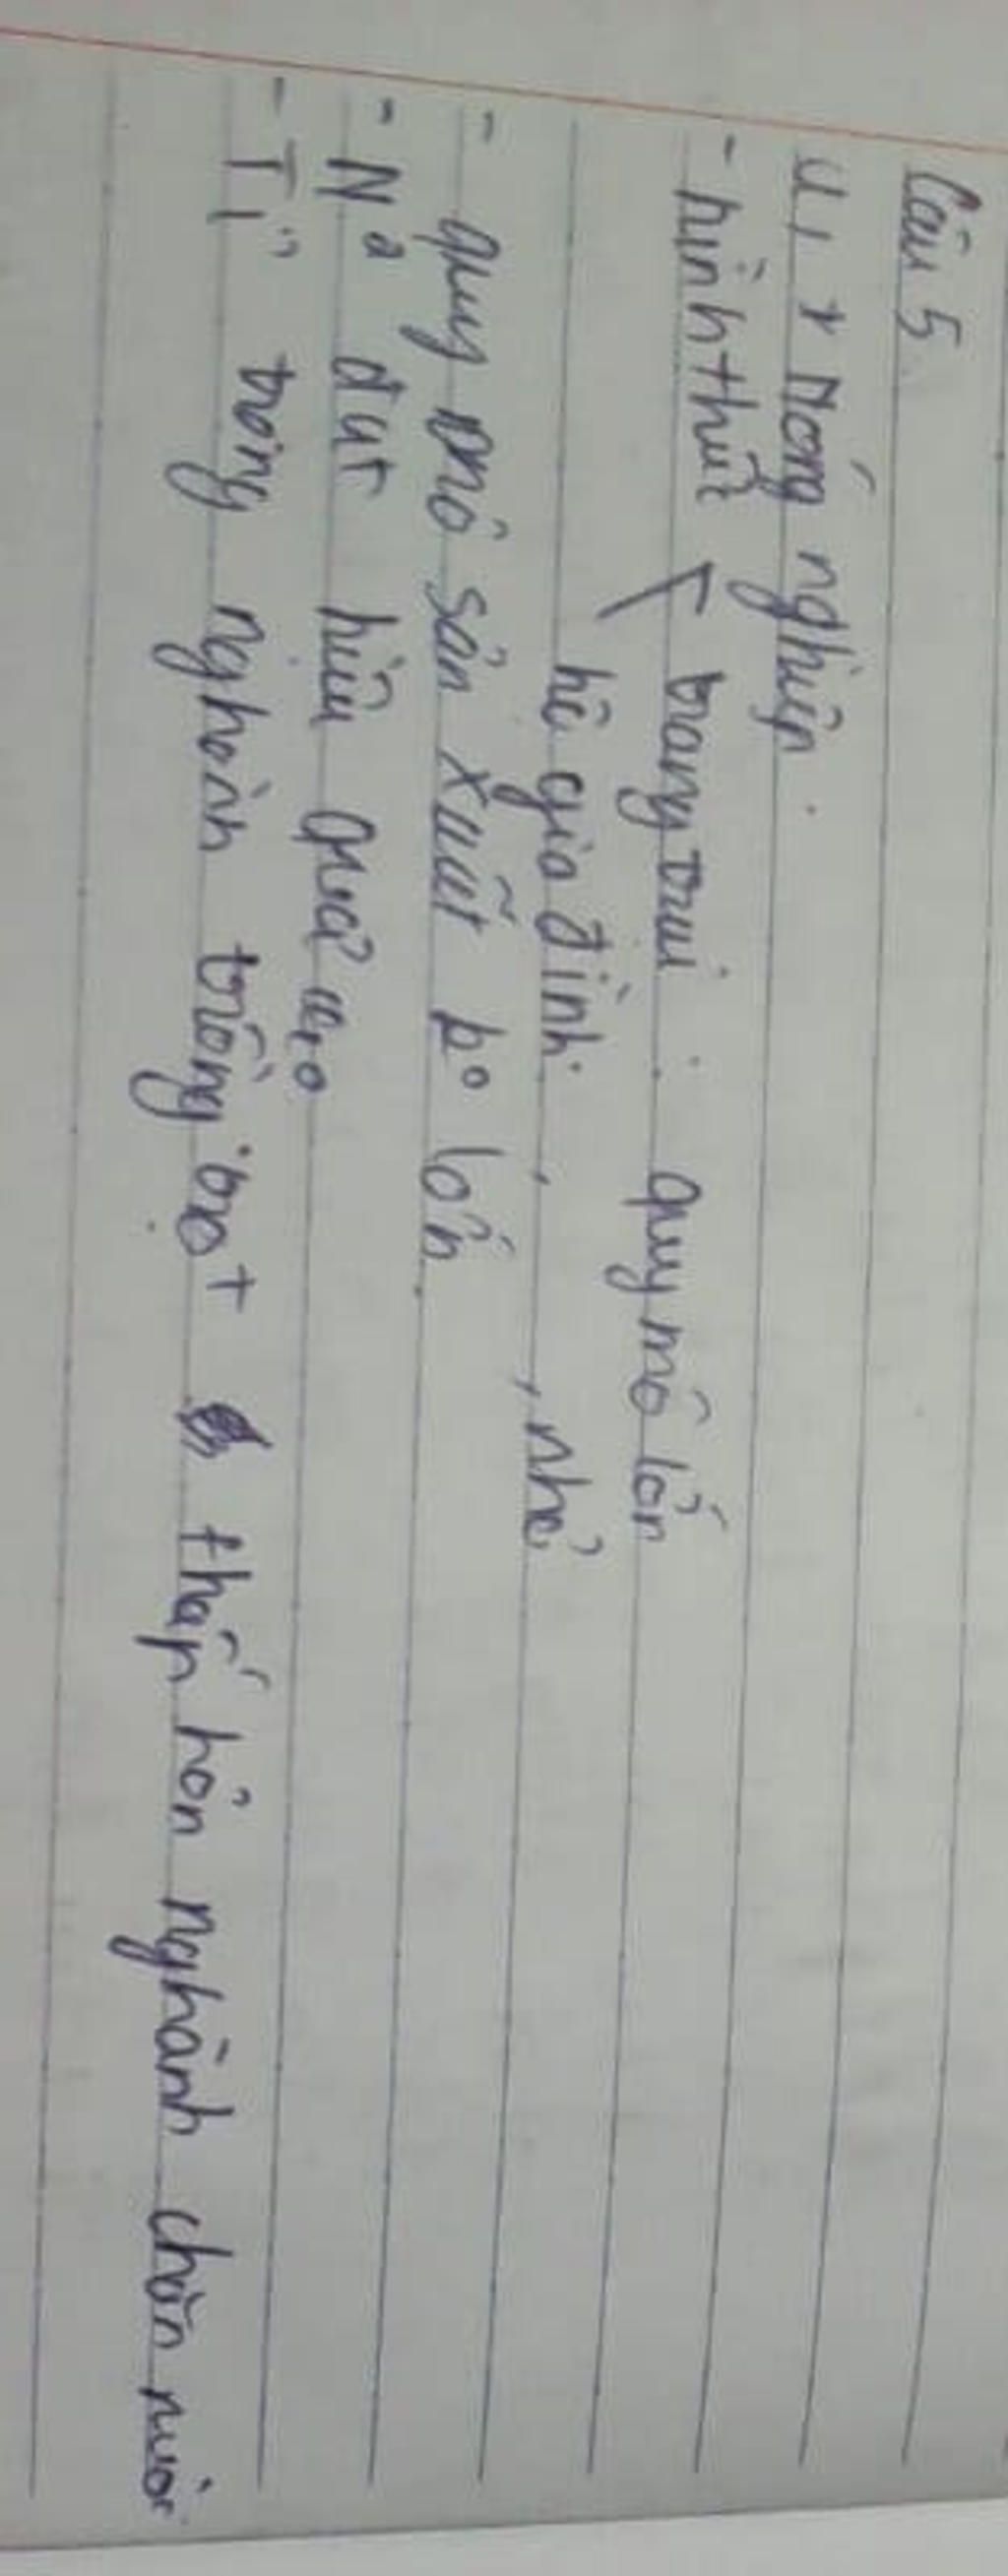 Câu 5
a, * Nông nghiệp.
- hình thức < trang trại : quy mô lớn
hộ gia đình : , nhỏ
- quy mô sản xuất to lớn.
- N đạt hiệu quả cao
- Tỉ trọng nghành trồng trọt thấp hơn nghành chăn nuôi